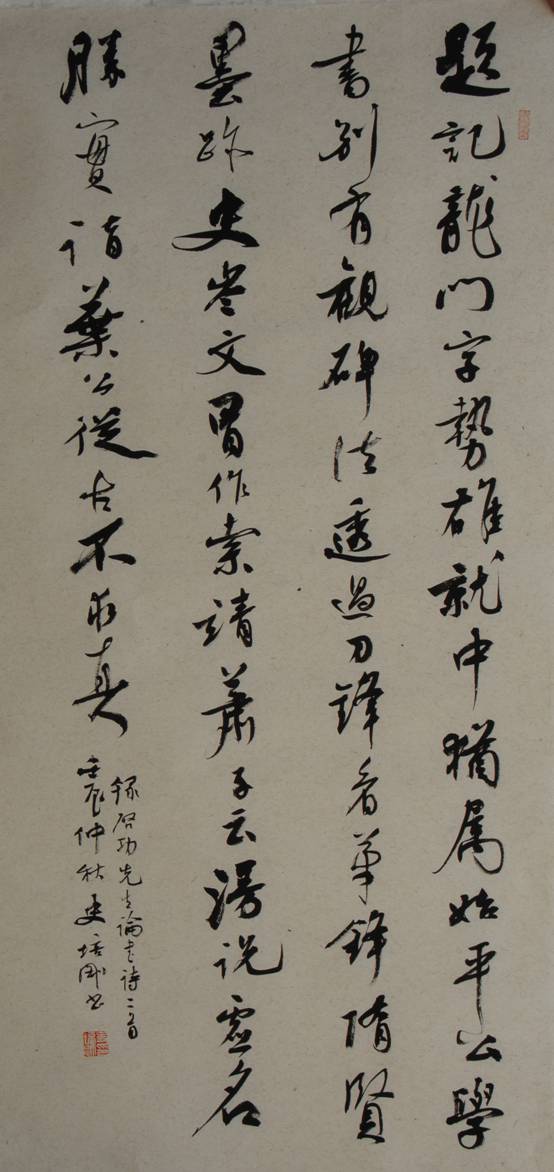 題記龍門字勢雄就中猶属始平公學
書别有觀碑法透過刀鋒看筆鋒隋賢
墨跡史岑文冒作索靖蕭子云漫説虚名
勝實詣葉公從古不求真
録啓功先生論書詩二首
壬辰仲秋史培刚书